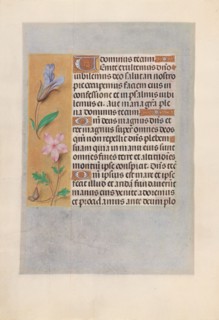 Dominus tecum
Venite exultemus dn̄o
iubilemus deo salutari nostro
preoccupemus faciem eius in
confessione et in psalmis iubi
lemus ei. Aue maria gr̄a ple
na dominus tecum
Qm̄ deus magnus dn̄s et
rex magnus super omnes deos
qm̄ non repellit dn̄s plebem
suam quia in manu eius sunt
omnes fines terre et altitudines
montiū ipse conspicit. Dn̄s tecū
Qm̄ ipsius est mare et ipse
fecit illud et aridā fundauerūt
manus eius venite adoremus
et procidamus ante deum plo